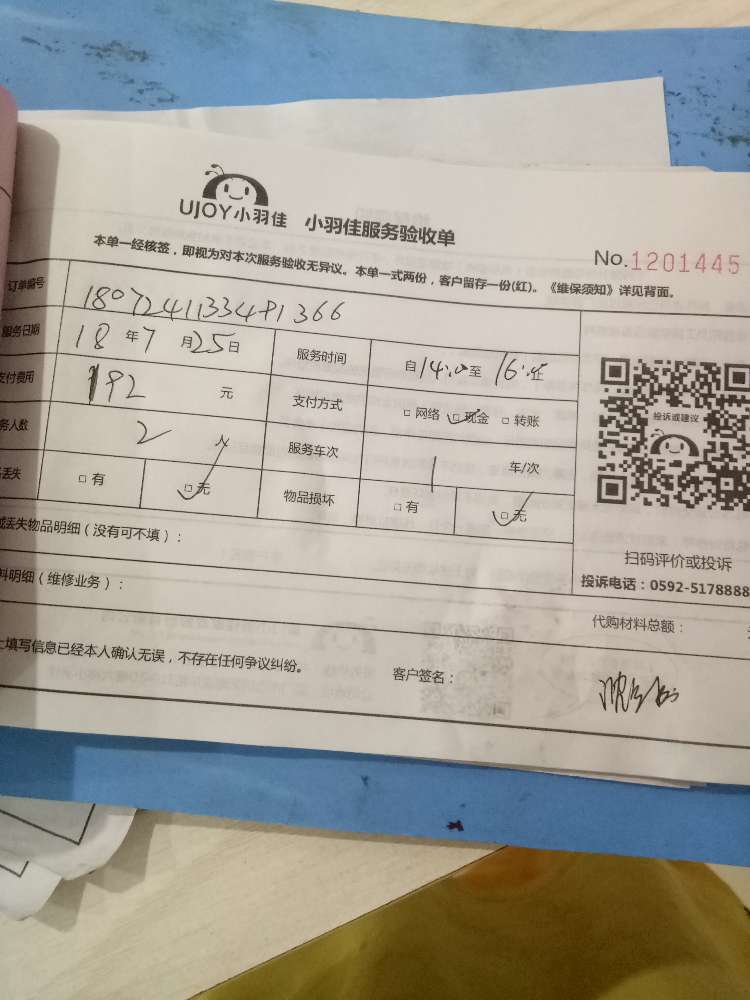 UJOY小羽佳 小羽佳服务验收单
No.1201445
本单一经核签，即视为对本次服务验收无异议。本单一式两份，客户留存一份(红)。《维保须知》详见背面。
订单编号 1807241133481366
服务日期 18年7月25日 服务时间 自14:00至16:
支付费用 192元 支付方式 □网络 □现金 □转账
务人数 2人 服务车次 1车/次
丢失 □有 □无 物品损坏 □有 □无
投诉或建议
或丢失物品明细（没有可不填）：
扫码评价或投诉
料明细（维修业务）：
投诉电话：0592-5178888
代购材料总额：
上填写信息已经本人确认无误，不存在任何争议纠纷。
客户签名：